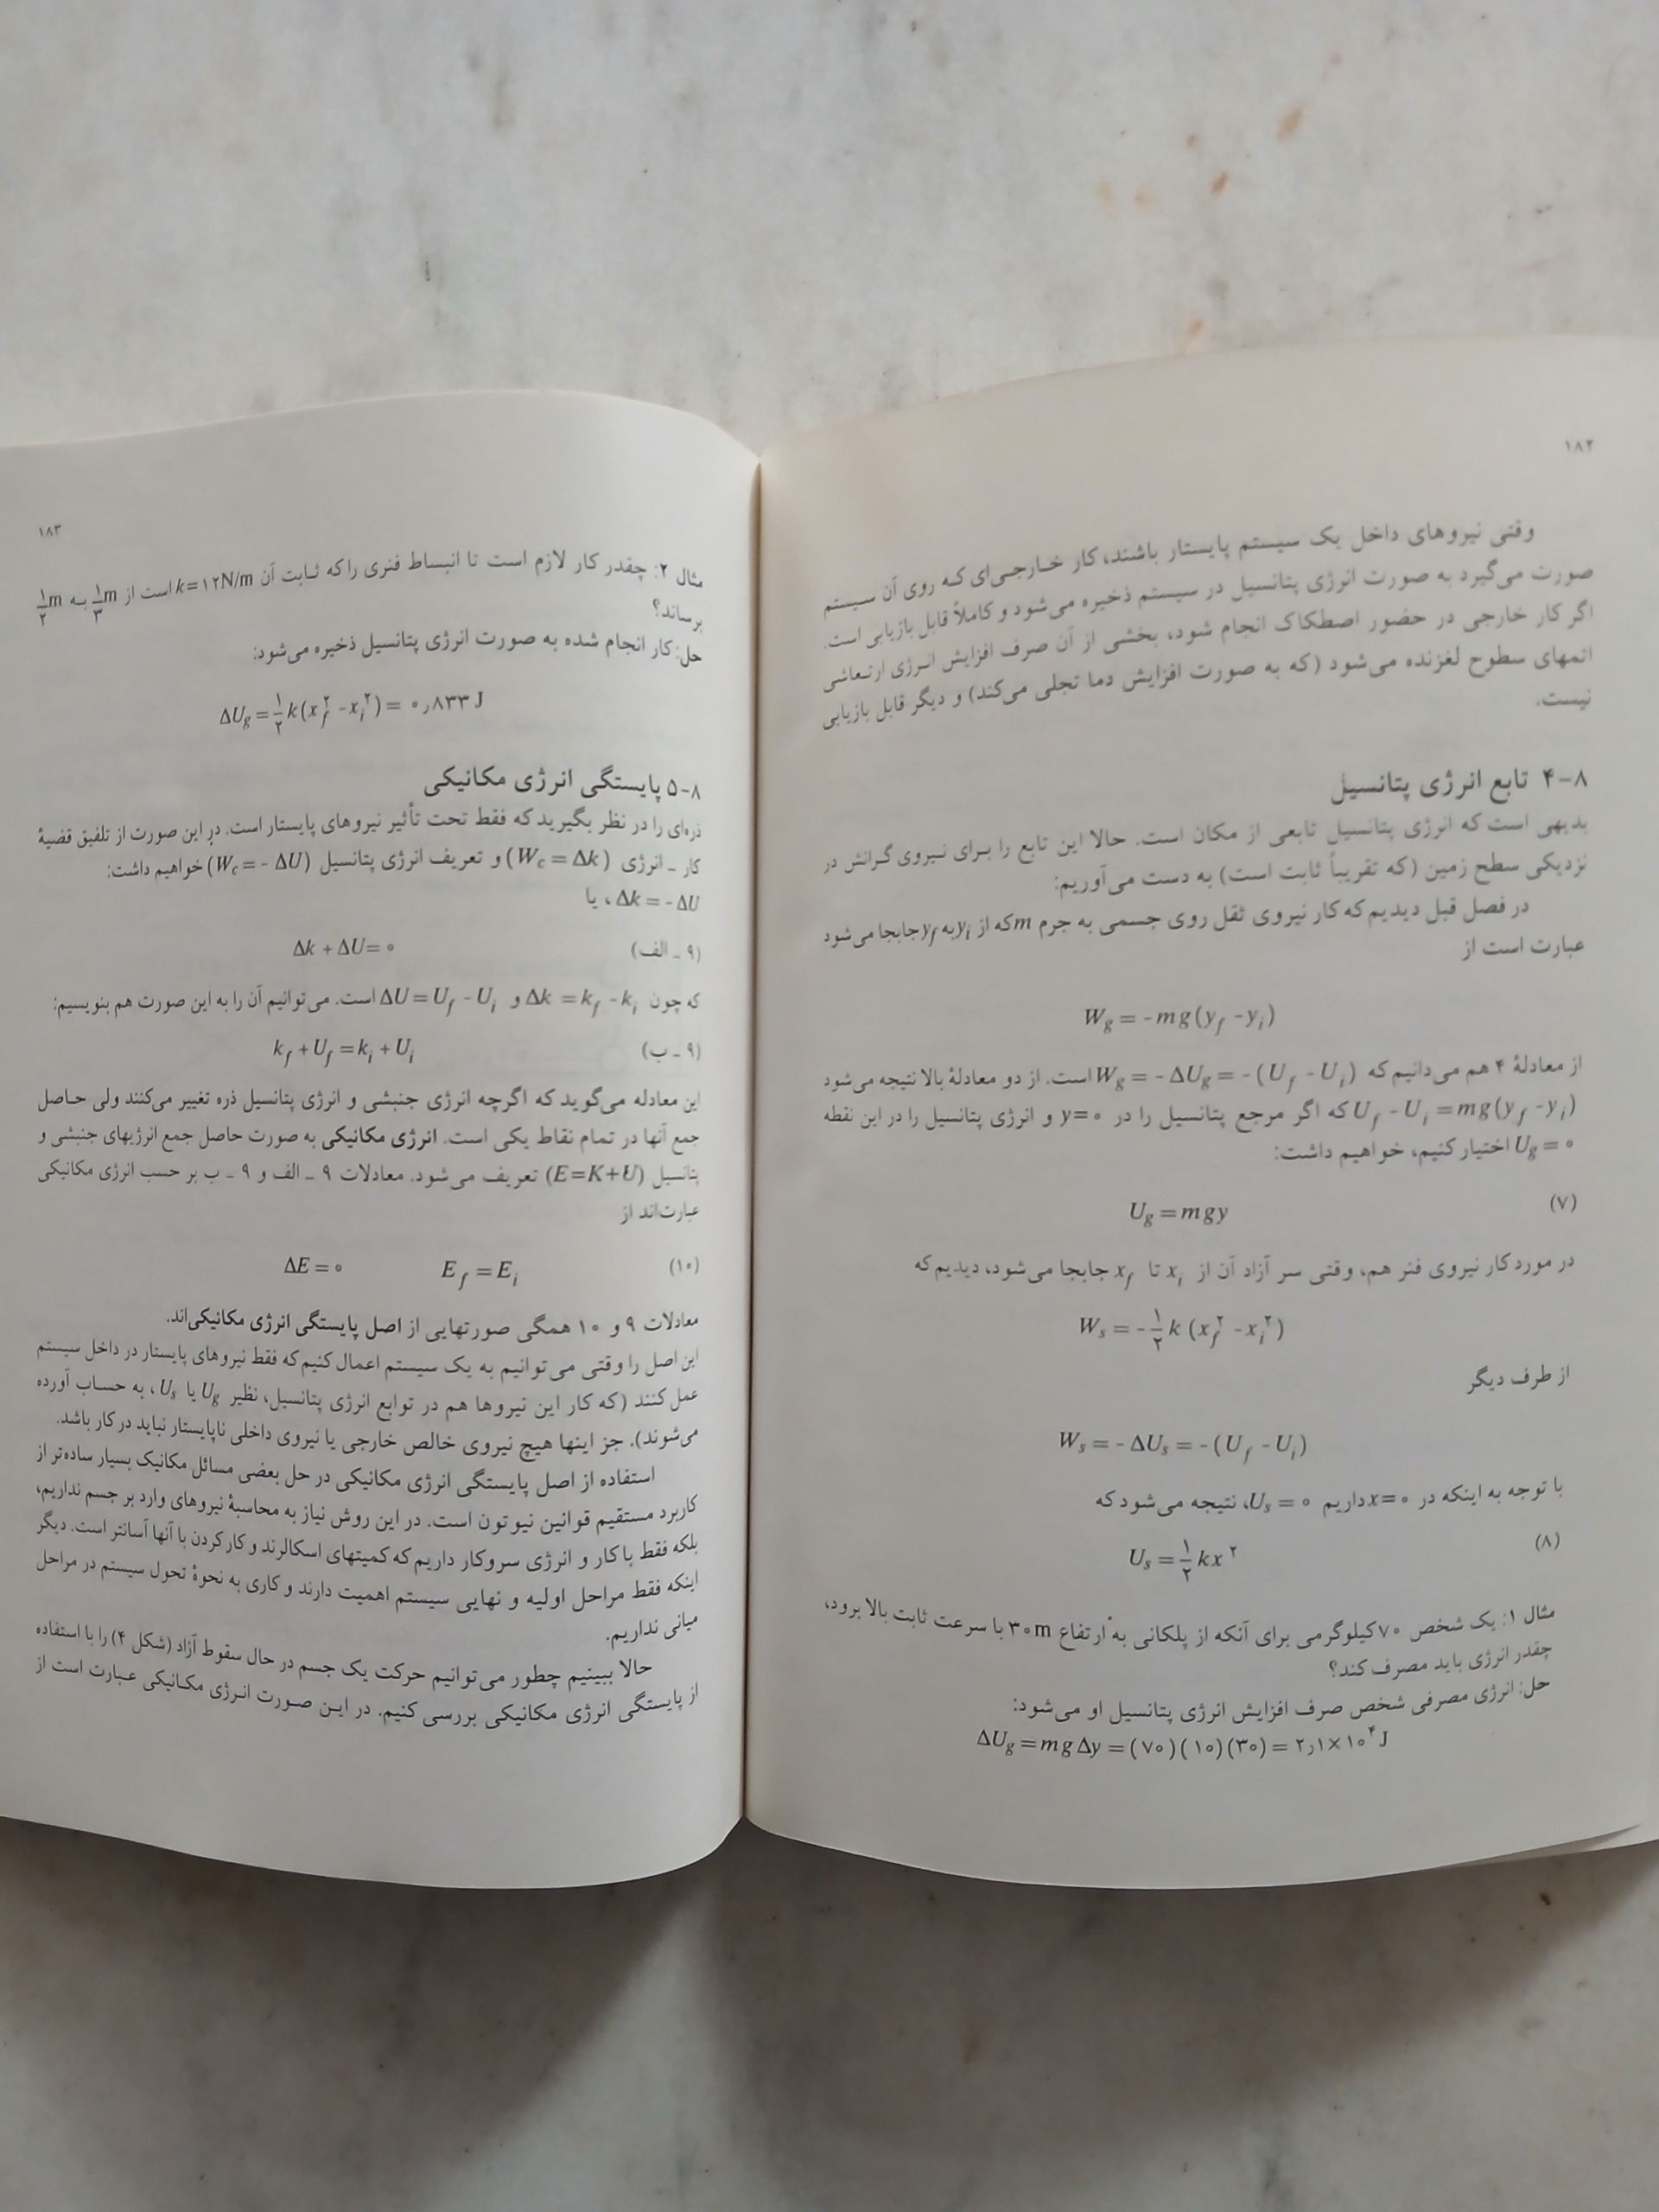 ۱۸۲
وقتی نیروهای داخل یک سیستم پایستار باشند، کار خارجی‌ای که روی آن سیستم
صورت می‌گیرد به صورت انرژی پتانسیل در سیستم ذخیره می‌شود و کاملاً قابل بازیابی است.
اگر کار خارجی در حضور اصطکاک انجام شود، بخشی از آن صرف افزایش انرژی ارتعاشی
اتمهای سطوح لغزنده می‌شود (که به صورت افزایش دما تجلی می‌کند) و دیگر قابل بازیابی
نیست.
۸-۴ تابع انرژی پتانسیل
بدیهی است که انرژی پتانسیل تابعی از مکان است. حالا این تابع را برای نیروی گرانش در
نزدیکی سطح زمین (که تقریباً ثابت است) به دست می‌آوریم:
در فصل قبل دیدیم که کار نیروی ثقل روی جسمی به جرم m که از y_i به y_f جابجا می‌شود
عبارت است از
W_g = -mg(y_f - y_i)
از معادلهٔ ۴ هم می‌دانیم که W_g = -ΔU_g = -(U_f - U_i) است. از دو معادلهٔ بالا نتیجه می‌شود
U_f - U_i = mg(y_f - y_i) که اگر مرجع پتانسیل را در y=۰ و انرژی پتانسیل را در این نقطه
U_g = ۰ اختیار کنیم، خواهیم داشت:
U_g = mgy (۷)
در مورد کار نیروی فنر هم، وقتی سر آزاد آن از x_i تا x_f جابجا می‌شود، دیدیم که
W_s = -۱/۲ k (x_f^۲ - x_i^۲)
از طرف دیگر
W_s = -ΔU_s = -(U_f - U_i)
با توجه به اینکه در x=۰ داریم U_s = ۰، نتیجه می‌شود که
U_s = ۱/۲ kx^۲ (۸)
مثال ۱: یک شخص ۷۰ کیلوگرمی برای آنکه از پلکانی به ارتفاع ۳۰m با سرعت ثابت بالا برود،
چقدر انرژی باید مصرف کند؟
حل: انرژی مصرفی شخص صرف افزایش انرژی پتانسیل او می‌شود:
ΔU_g = mgΔy = (۷۰)(۱۰)(۳۰) = ۲٫۱×۱۰^۴ J
۱۸۳
مثال ۲: چقدر کار لازم است تا انبساط فنری را که ثابت آن k=۱۲N/m است از ۱/۳m به ۱/۲m
برساند؟
حل: کار انجام شده به صورت انرژی پتانسیل ذخیره می‌شود:
ΔU_g = ۱/۲ k(x_f^۲ - x_i^۲) = ۰٫۸۳۳ J
۸-۵ پایستگی انرژی مکانیکی
ذره‌ای را در نظر بگیرید که فقط تحت تأثیر نیروهای پایستار است. در این صورت از تلفیق قضیهٔ
کار ـ انرژی (W_c = Δk) و تعریف انرژی پتانسیل (W_c = -ΔU) خواهیم داشت:
Δk = -ΔU، یا
Δk + ΔU = ۰ (۹ ـ الف)
که چون Δk = k_f - k_i و ΔU = U_f - U_i است. می‌توانیم آن را به این صورت هم بنویسیم:
k_f + U_f = k_i + U_i (۹ ـ ب)
این معادله می‌گوید که اگرچه انرژی جنبشی و انرژی پتانسیل ذره تغییر می‌کنند ولی حاصل
جمع آنها در تمام نقاط یکی است. انرژی مکانیکی به صورت حاصل جمع انرژیهای جنبشی و
پتانسیل (E=K+U) تعریف می‌شود. معادلات ۹ ـ الف و ۹ ـ ب بر حسب انرژی مکانیکی
عبارت‌اند از
ΔE = ۰ E_f = E_i (۱۰)
معادلات ۹ و ۱۰ همگی صورتهایی از اصل پایستگی انرژی مکانیکی‌اند.
این اصل را وقتی می‌توانیم به یک سیستم اعمال کنیم که فقط نیروهای پایستار در داخل سیستم
عمل کنند (که کار این نیروها هم در توابع انرژی پتانسیل، نظیر U_g یا U_s، به حساب آورده
می‌شوند). جز اینها هیچ نیروی خالص خارجی یا نیروی داخلی ناپایستار نباید در کار باشد.
استفاده از اصل پایستگی انرژی مکانیکی در حل بعضی مسائل مکانیک بسیار ساده‌تر از
کاربرد مستقیم قوانین نیوتون است. در این روش نیاز به محاسبهٔ نیروهای وارد بر جسم نداریم،
بلکه فقط با کار و انرژی سروکار داریم که کمیتهای اسکالرند و کار کردن با آنها آسانتر است. دیگر
اینکه فقط مراحل اولیه و نهایی سیستم اهمیت دارند و کاری به نحوهٔ تحول سیستم در مراحل
میانی نداریم.
حالا ببینیم چطور می‌توانیم حرکت یک جسم در حال سقوط آزاد (شکل ۴) را با استفاده
از پایستگی انرژی مکانیکی بررسی کنیم. در این صورت انرژی مکانیکی عبارت است از